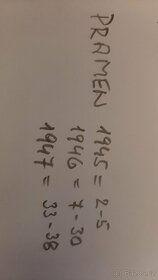 PRAMEN 1945 = 2-5
1946 = 7-30
1947 = 33-38